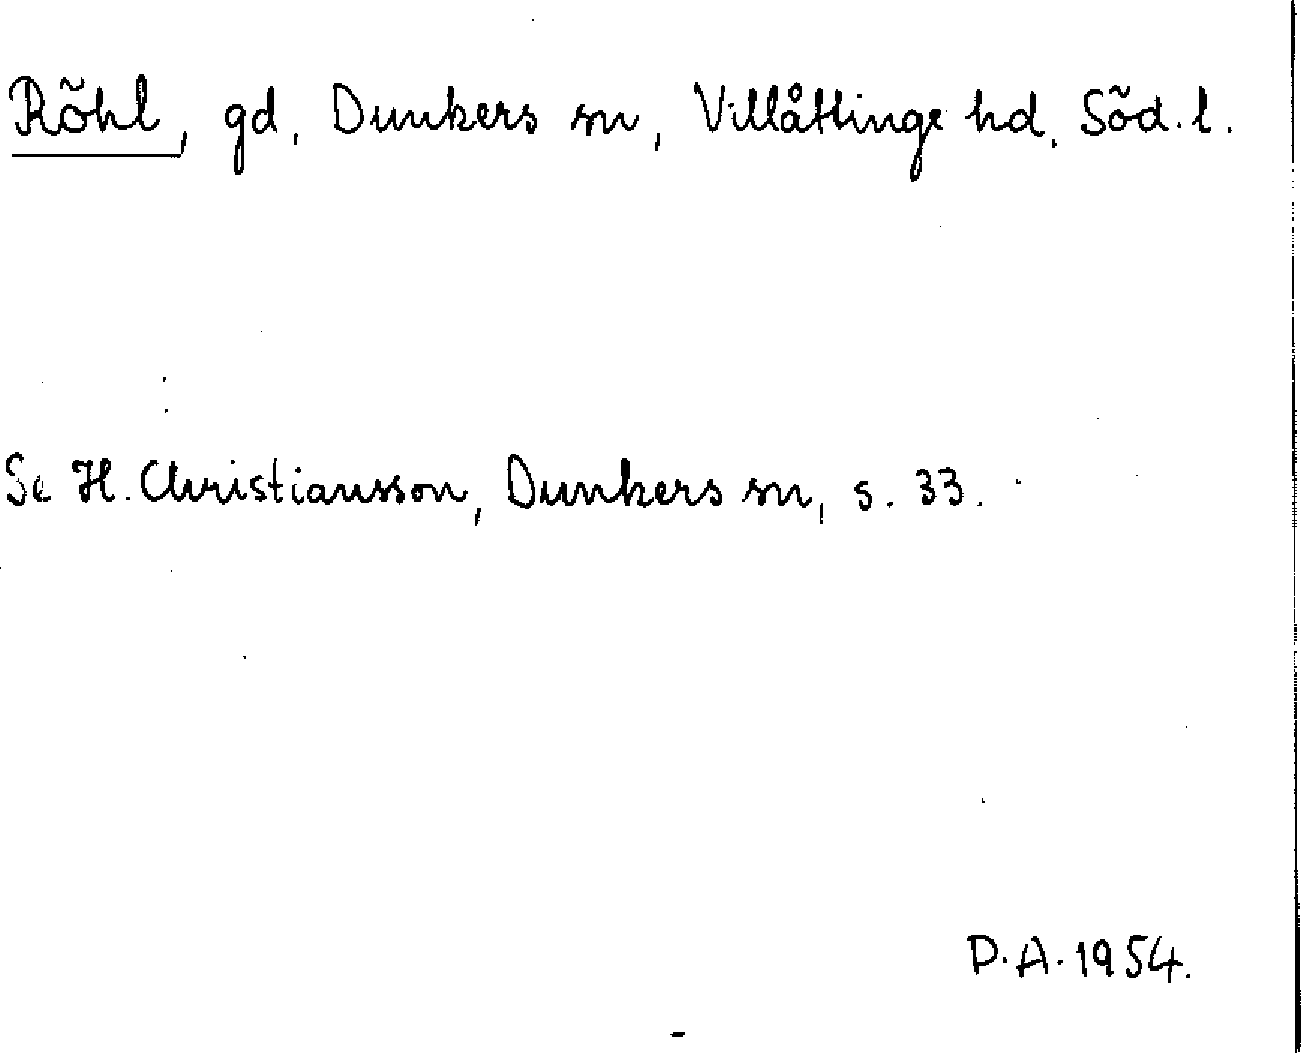 Röhl, gd, Dunkers sn, Villåttinge hd, Söd. l.
Se H. Christiansson, Dunkers sn, s. 33.
P.A. 1954.